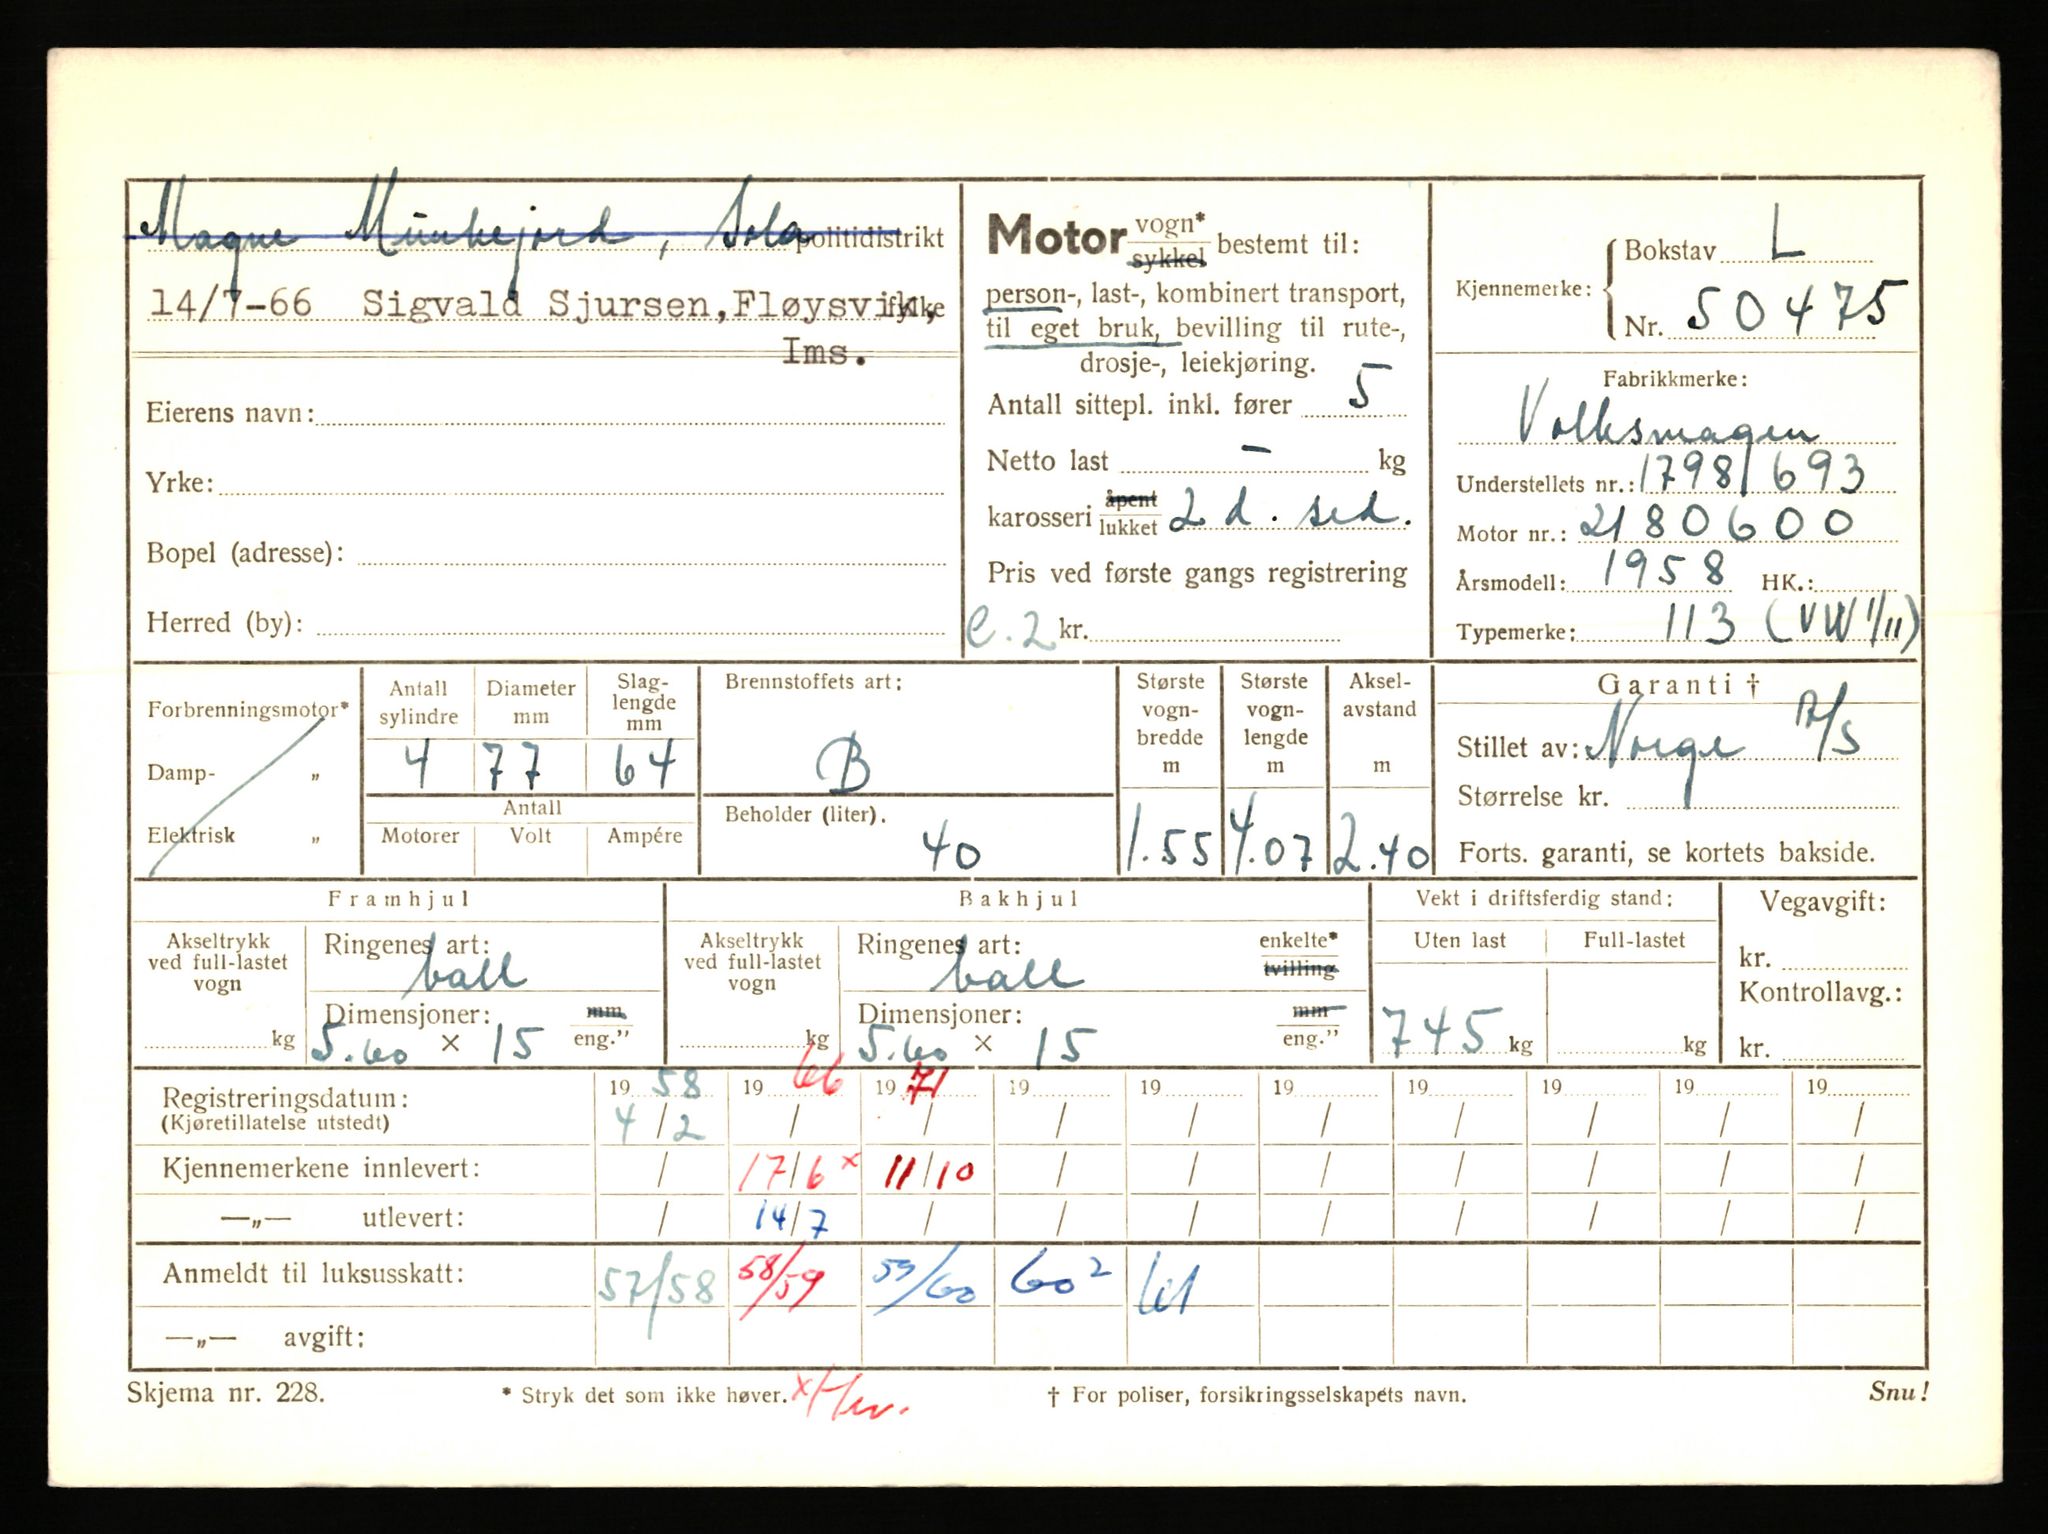 Magne Munkejord, Sola politidistrikt
14/7-66 Sigvald Sjursen, Fløysvik, fylke
Ims.
Eierens navn:
Yrke:
Bopel (adresse):
Herred (by):
Motor vogn* sykkel bestemt til:
person-, last-, kombinert transport,
til eget bruk, bevilling til rute-,
drosje-, leiekjøring.
Antall sittepl. inkl. fører 5
Netto last - kg
karosseri åpent lukket 2 d. sed.
Pris ved første gangs registrering
C.2 kr.
Kjennemerke: Bokstav L
Nr. 50475
Fabrikkmerke:
Volkswagen
Understellets nr.: 1798/693
Motor nr.: 2180600
Årsmodell: 1958 HK.:
Typemerke: 113 (VW 1/11)
Forbrenningsmotor*
Damp- „
Elektrisk „
Antall sylindre 4
Diameter mm 77
Slaglengde mm 64
Antall
Motorer Volt Ampére
Brennstoffets art: B
Beholder (liter). 40
Største vogn-bredde m 1.55
Største vogn-lengde m 4.07
Aksel-avstand m 2.40
Garanti †
Stillet av: Norge A/S
Størrelse kr.
Forts. garanti, se kortets bakside.
Framhjul
Akseltrykk ved full-lastet vogn kg
Ringenes art: ball
Dimensjoner: mm eng.”
5.60 × 15
Bakhjul
Akseltrykk ved full-lastet vogn kg
Ringenes art: ball enkelte* tvilling
Dimensjoner: mm eng.”
5.60 × 15
Vekt i driftsferdig stand:
Uten last Full-lastet
745 kg kg
Vegavgift:
kr.
Kontrollavg.:
kr.
19 58 19 66 19 71 19 19 19 19 19 19 19
Registreringsdatum:
(Kjøretillatelse utstedt) 4/2 / / / / / / / / /
Kjennemerkene innlevert: / 17/6 x 11/10 / / / / / / /
—„— utlevert: / 14/7 / / / / / / / /
Anmeldt til luksusskatt: 57/58 58/59 59/60 60² 61
—„— avgift:
Skjema nr. 228. * Stryk det som ikke høver. † For poliser, forsikringsselskapets navn. Snu!